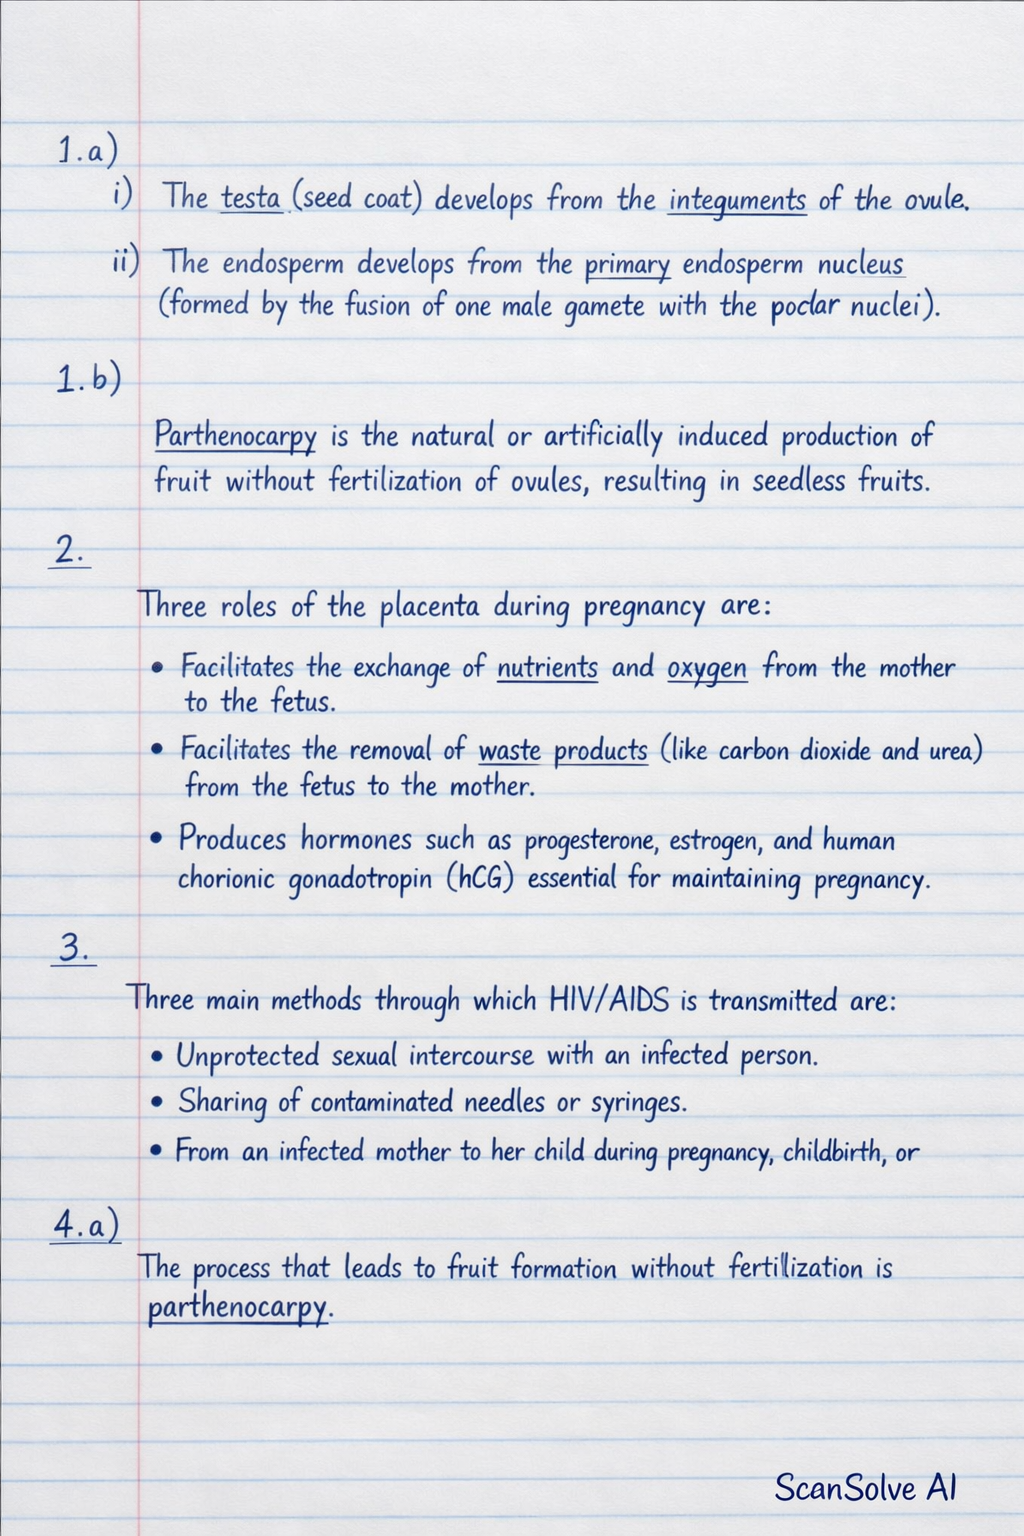 1.a)
i) The testa (seed coat) develops from the integuments of the ovule.
ii) The endosperm develops from the primary endosperm nucleus
(formed by the fusion of one male gamete with the poclar nuclei).
1.b)
Parthenocarpy is the natural or artificially induced production of
fruit without fertilization of ovules, resulting in seedless fruits.
2.
Three roles of the placenta during pregnancy are:
• Facilitates the exchange of nutrients and oxygen from the mother
to the fetus.
• Facilitates the removal of waste products (like carbon dioxide and urea)
from the fetus to the mother.
• Produces hormones such as progesterone, estrogen, and human
chorionic gonadotropin (hCG) essential for maintaining pregnancy.
3.
Three main methods through which HIV/AIDS is transmitted are:
• Unprotected sexual intercourse with an infected person.
• Sharing of contaminated needles or syringes.
• From an infected mother to her child during pregnancy, childbirth, or
4.a)
The process that leads to fruit formation without fertilization is
parthenocarpy.
ScanSolve AI